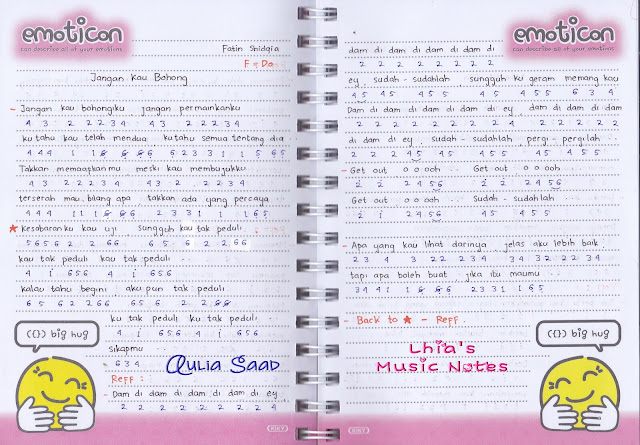 emoticon
can describe all of your emotions
Fatin Shidqia
F = Do
Jangan Kau Bohong
- Jangan kau bohongiku jangan permainkanku
4 3 2 2 2 3 4 4 3 2 2 2 3 4
ku tahu kau telah mendua ku tahu semua tentang dia
Takkan memaafkanmu meski kau membujukku
4 3 2 2 2 2 3 4 4 3 2 2 2 3 4
terserah mau bilang apa takkan ada yang percaya
★ Kesabaranku kau uji sungguh kau tak peduli
kau tak peduli kau tak peduli
4 i 6 5 6 4 i 6 5 6
kalau tahu begini aku pun tak peduli
ku tak peduli ku tak peduli
4 i 6 5 6 4 i 6 5 6
sikapmu
6 3 4
Reff :
- Dam di dam di dam di dam di ey
2 2 2 2 2 2 2 2 4
((())) big hug
Aulia Saad
emoticon
can describe all of your emotions
dam di dam di dam di dam di
2 2 2 2 2 2 2 2
ey sudah - sudahlah sungguh ku geram memang kau
4 5 4 5 4 5 5 4 5 4 5 5 6 3 4
Dam di dam di dam di dam di ey dam di dam di dam
2 2 2 2 2 2 2 2 4 2 2 2 2 2
di dam di ey sudah - sudahlah pergi - pergilah
2 2 2 4 5 4 5 4 5 5 4 5 4 5 5
- Get out o o ooh Get out o o ooh
Get out o o ooh Sudah - sudahlah
- Apa yang kau lihat darinya jelas aku lebih baik
2 3 4 3 2 2 2 3 4 3 4 3 2 2 2 3 4
tapi apa boleh buat jika itu maumu
- Back to ★ - Reff
Lhia's
Music Notes
((())) big hug
KIKY
KIKY